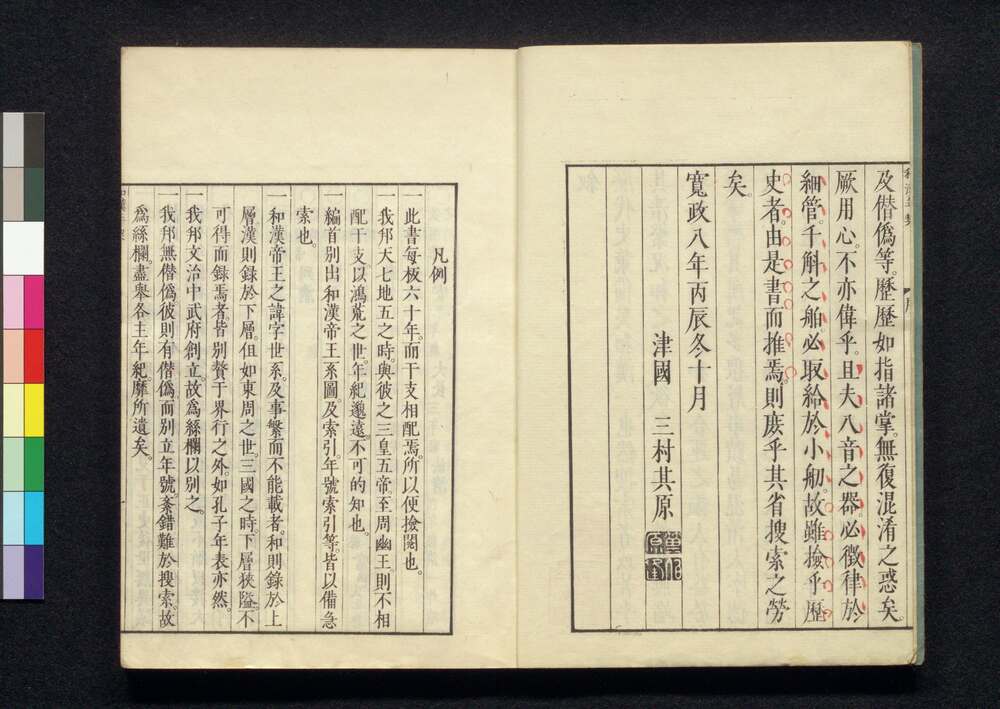 及僣僞等。歷歷如指諸掌。無復混淆之惑矣。
厥用心。不亦偉乎。且夫八音之器。必徵律於
細管。千斛之舶。必取給於小舠。故雖撿乎歷
史者。由是書而推焉。則庶乎其省搜索之勞
矣。
寬政八年丙辰冬十月
津國　三村其原
凡例
一此書每板六十年。而干支相配焉。所以便撿閱也。
我邦天七地五之時。與彼之三皇五帝至周幽王則不相
配干支。以鴻荒之世。年紀邈遠。不可的知也。
一編首別出和漢帝王系圖。及索引。年號索引等。皆以備急
索也。
一和漢帝王之諱字世系。及事繁而不能載者。和則錄於上
層。漢則錄於下層。但如東周之世。三國之時。下層狹隘。不
可得而錄焉者。皆別贅于界行之外。如孔子年表亦然。
一我邦文治中武府創立。故爲絲欄以別之。
一我邦無僣僞。彼則有僣僞。而別立年號。紊錯難於搜索。故
爲絲欄。盡舉各主年紀。靡所遺矣。